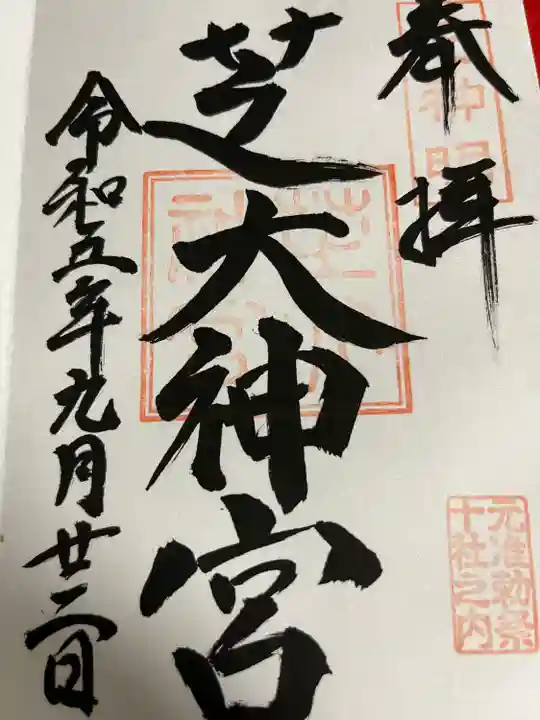 奉拝
芝大神宮
令和五年九月廿二日
元准勅祭
十社之内